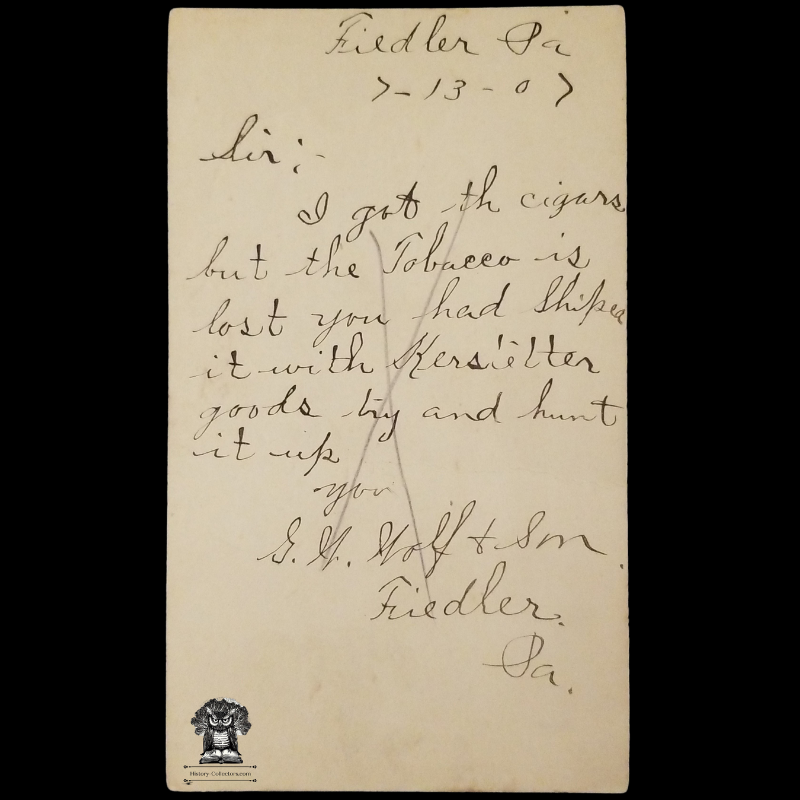 Fiedler Pa
7-13-07
Sir;-
I got th cigars
but the Tobacco is
lost you had Shiped
it with Kerstetter
goods try and hunt
it up
you
G. W. Wolf & Son.
Fiedler.
Pa.
History-Collectors.com